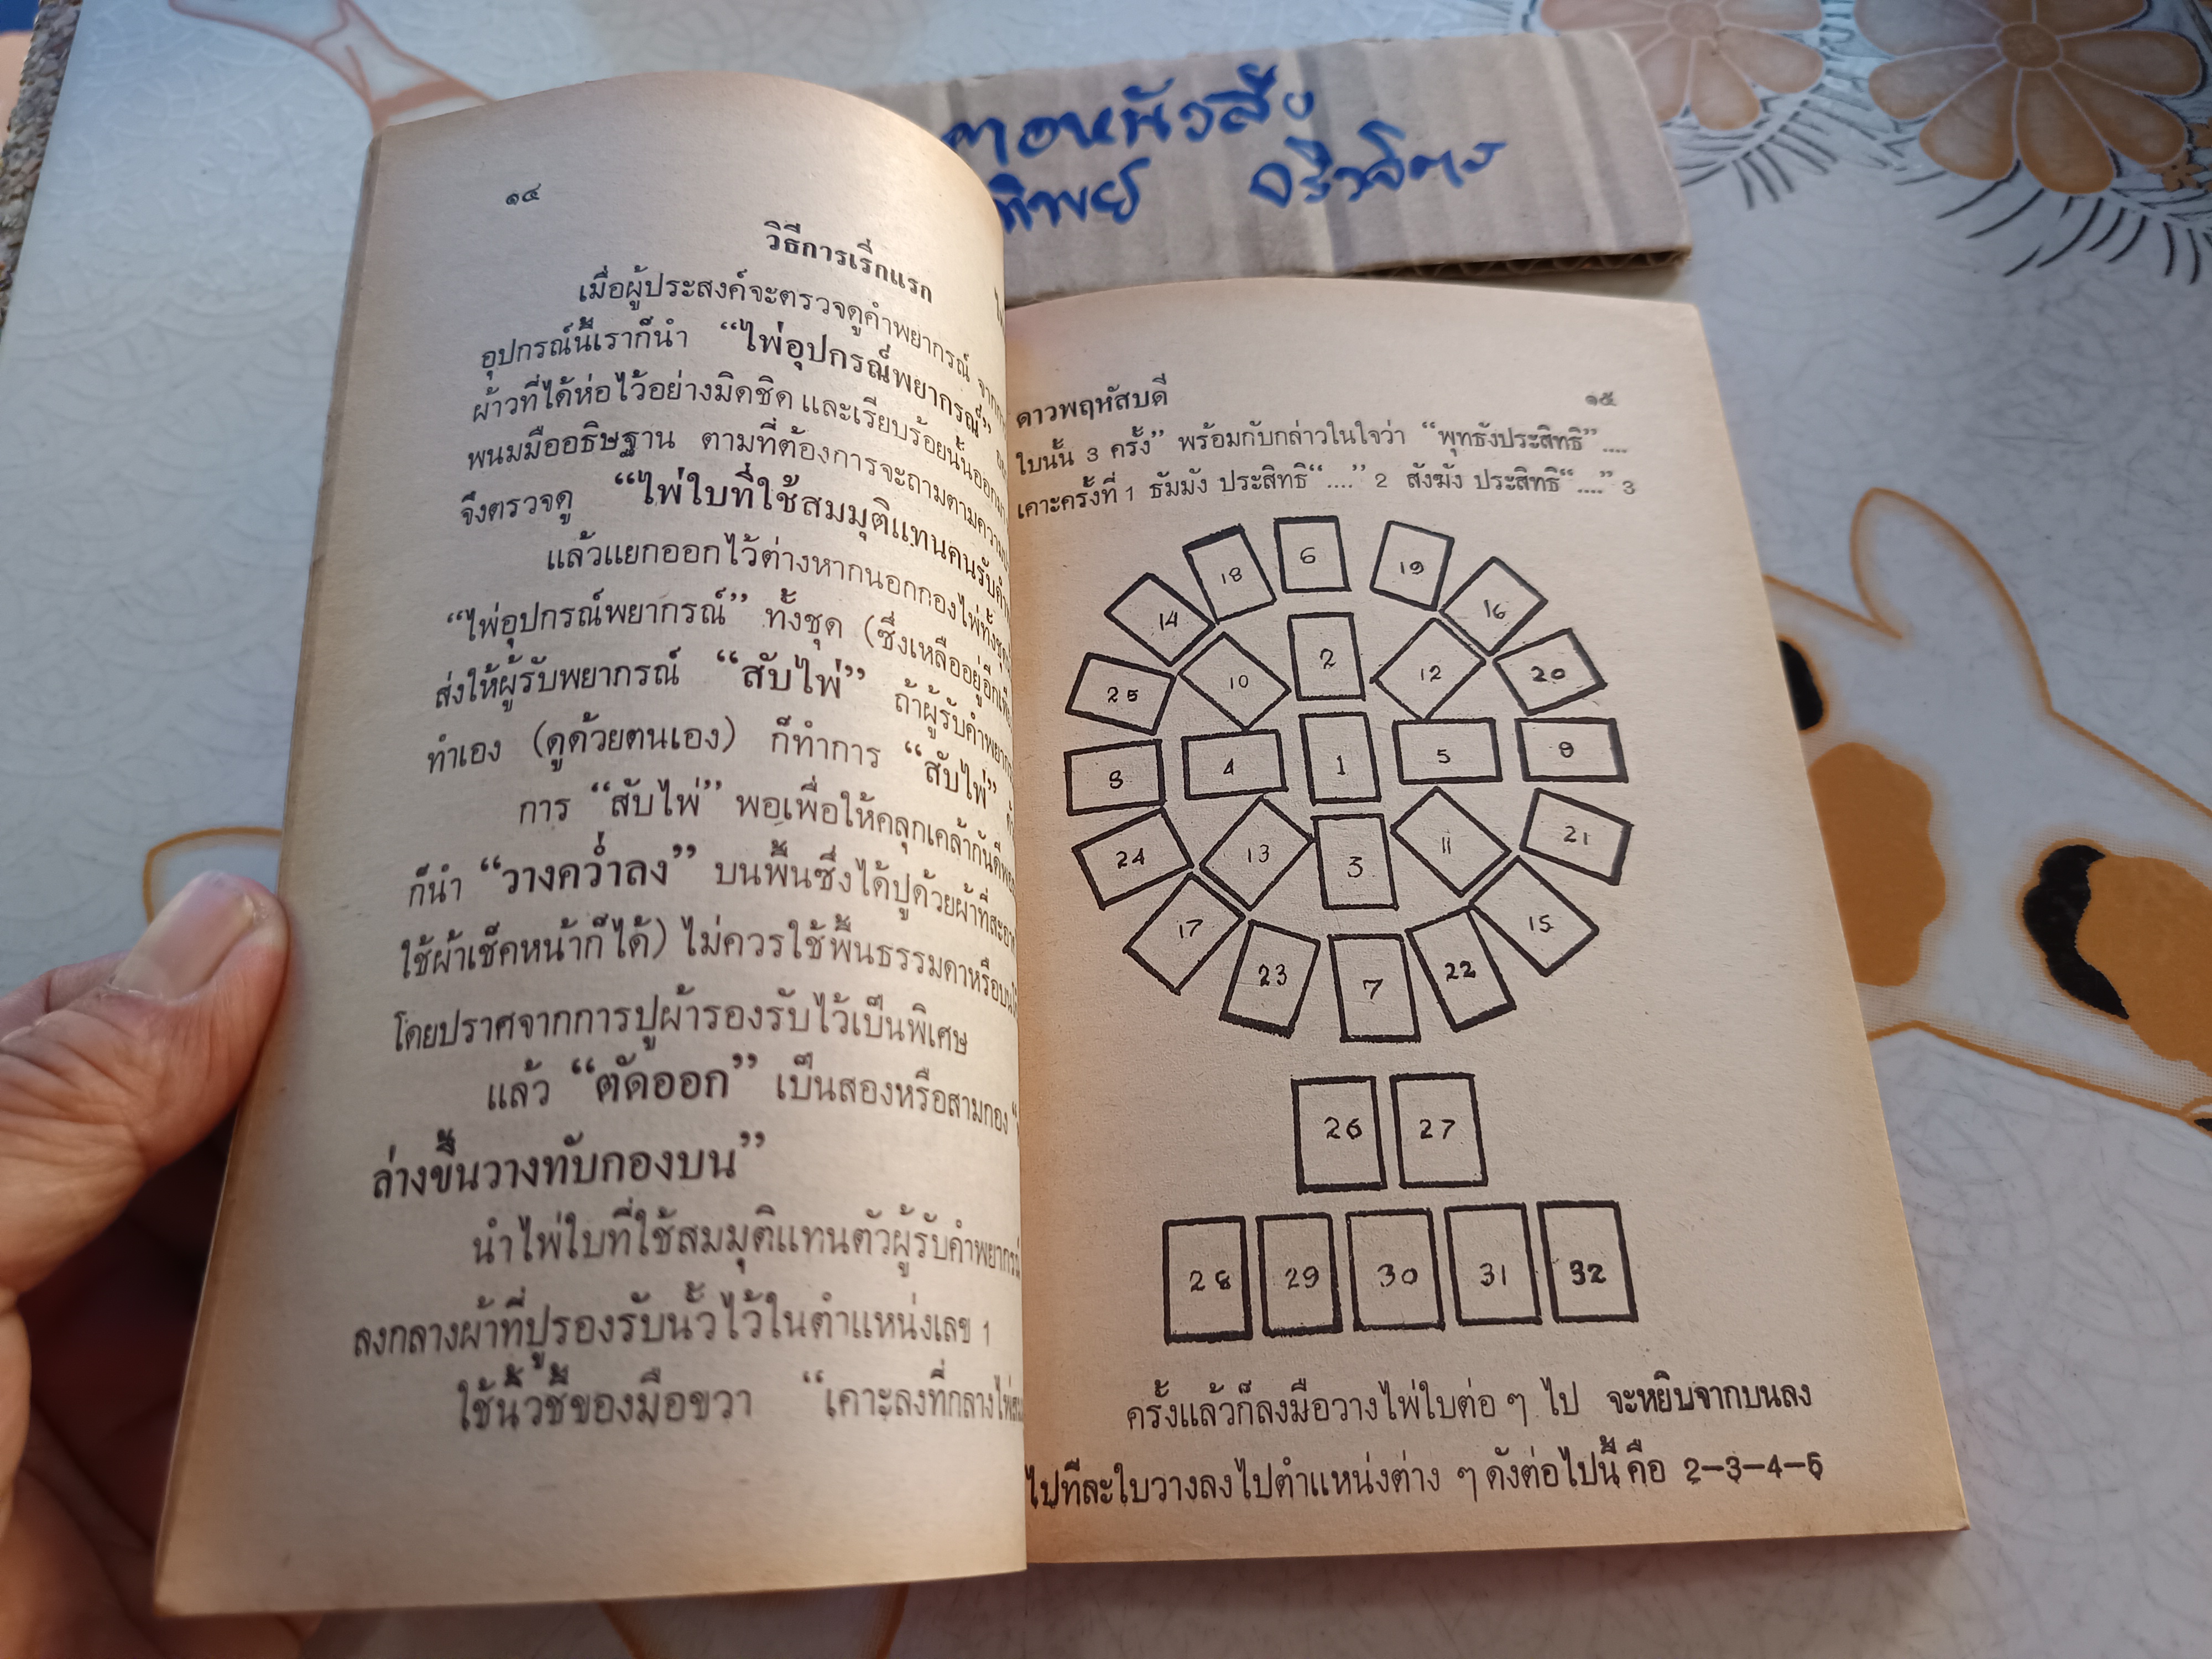 ตอหนังสือ
ทิพย์
๑๔
วิธีการเริ่กแรก
เมื่อผู้ประสงค์จะตรวจดูคำพยากรณ์ จาก
อุปกรณ์นี้เราก็นำ “ไพ่อุปกรณ์พยากรณ์”
ผ้าวที่ได้ห่อไว้อย่างมิดชิด และเรียบร้อยนั้นออกมา
พนมมืออธิษฐาน ตามที่ต้องการจะถามตามความ
จึงตรวจดู “ไพ่ใบที่ใช้สมมุติแทนคนรับคำ
แล้วแยกออกไว้ต่างหากนอกกองไพ่ทั้งชุด
“ไพ่อุปกรณ์พยากรณ์” ทั้งชุด (ซึ่งเหลืออยู่อีก
ส่งให้ผู้รับพยากรณ์ “สับไพ่” ถ้าผู้รับคำพยากร
ทำเอง (ดูด้วยตนเอง) ก็ทำการ “สับไพ่”
การ “สับไพ่” พอเพื่อให้คลุกเคล้ากันดี
ก็นำ “วางคว่ำลง” บนพื้นซึ่งได้ปูด้วยผ้าที่สะอา
ใช้ผ้าเช็คหน้าก็ได้) ไม่ควรใช้พื้นธรรมดาหรือบน
โดยปราศจากการปูผ้ารองรับไว้เป็นพิเศษ
แล้ว “ตัดออก” เป็นสองหรือสามกอง
ล่างขึ้นวางทับกองบน”
นำไพ่ใบที่ใช้สมมุติแทนตัวผู้รับคำพยากรณ์
ลงกลางผ้าที่ปูรองรับนั้วไว้ในตำแหน่งเลข 1
ใช้นิ้วชี้ของมือขวา “เคาะลงที่กลางไพ่
ดาวพฤหัสบดี ๑๕
ใบนั้น 3 ครั้ง” พร้อมกับกล่าวในใจว่า “พุทธังประสิทธิ”....
เคาะครั้งที่ 1 ธัมมัง ประสิทธิ“....” 2 สังฆัง ประสิทธิ“....” 3
18 6 19
14 16
25 10 2 12 20
8 4 1 5 9
24 13 3 11 21
17 15
23 7 22
26 27
28 29 30 31 32
ครั้งแล้วก็ลงมือวางไพ่ใบต่อ ๆ ไป จะหยิบจากบนลง
ไปทีละใบวางลงไปตำแหน่งต่าง ๆ ดังต่อไปนี้ คือ 2–3–4–5